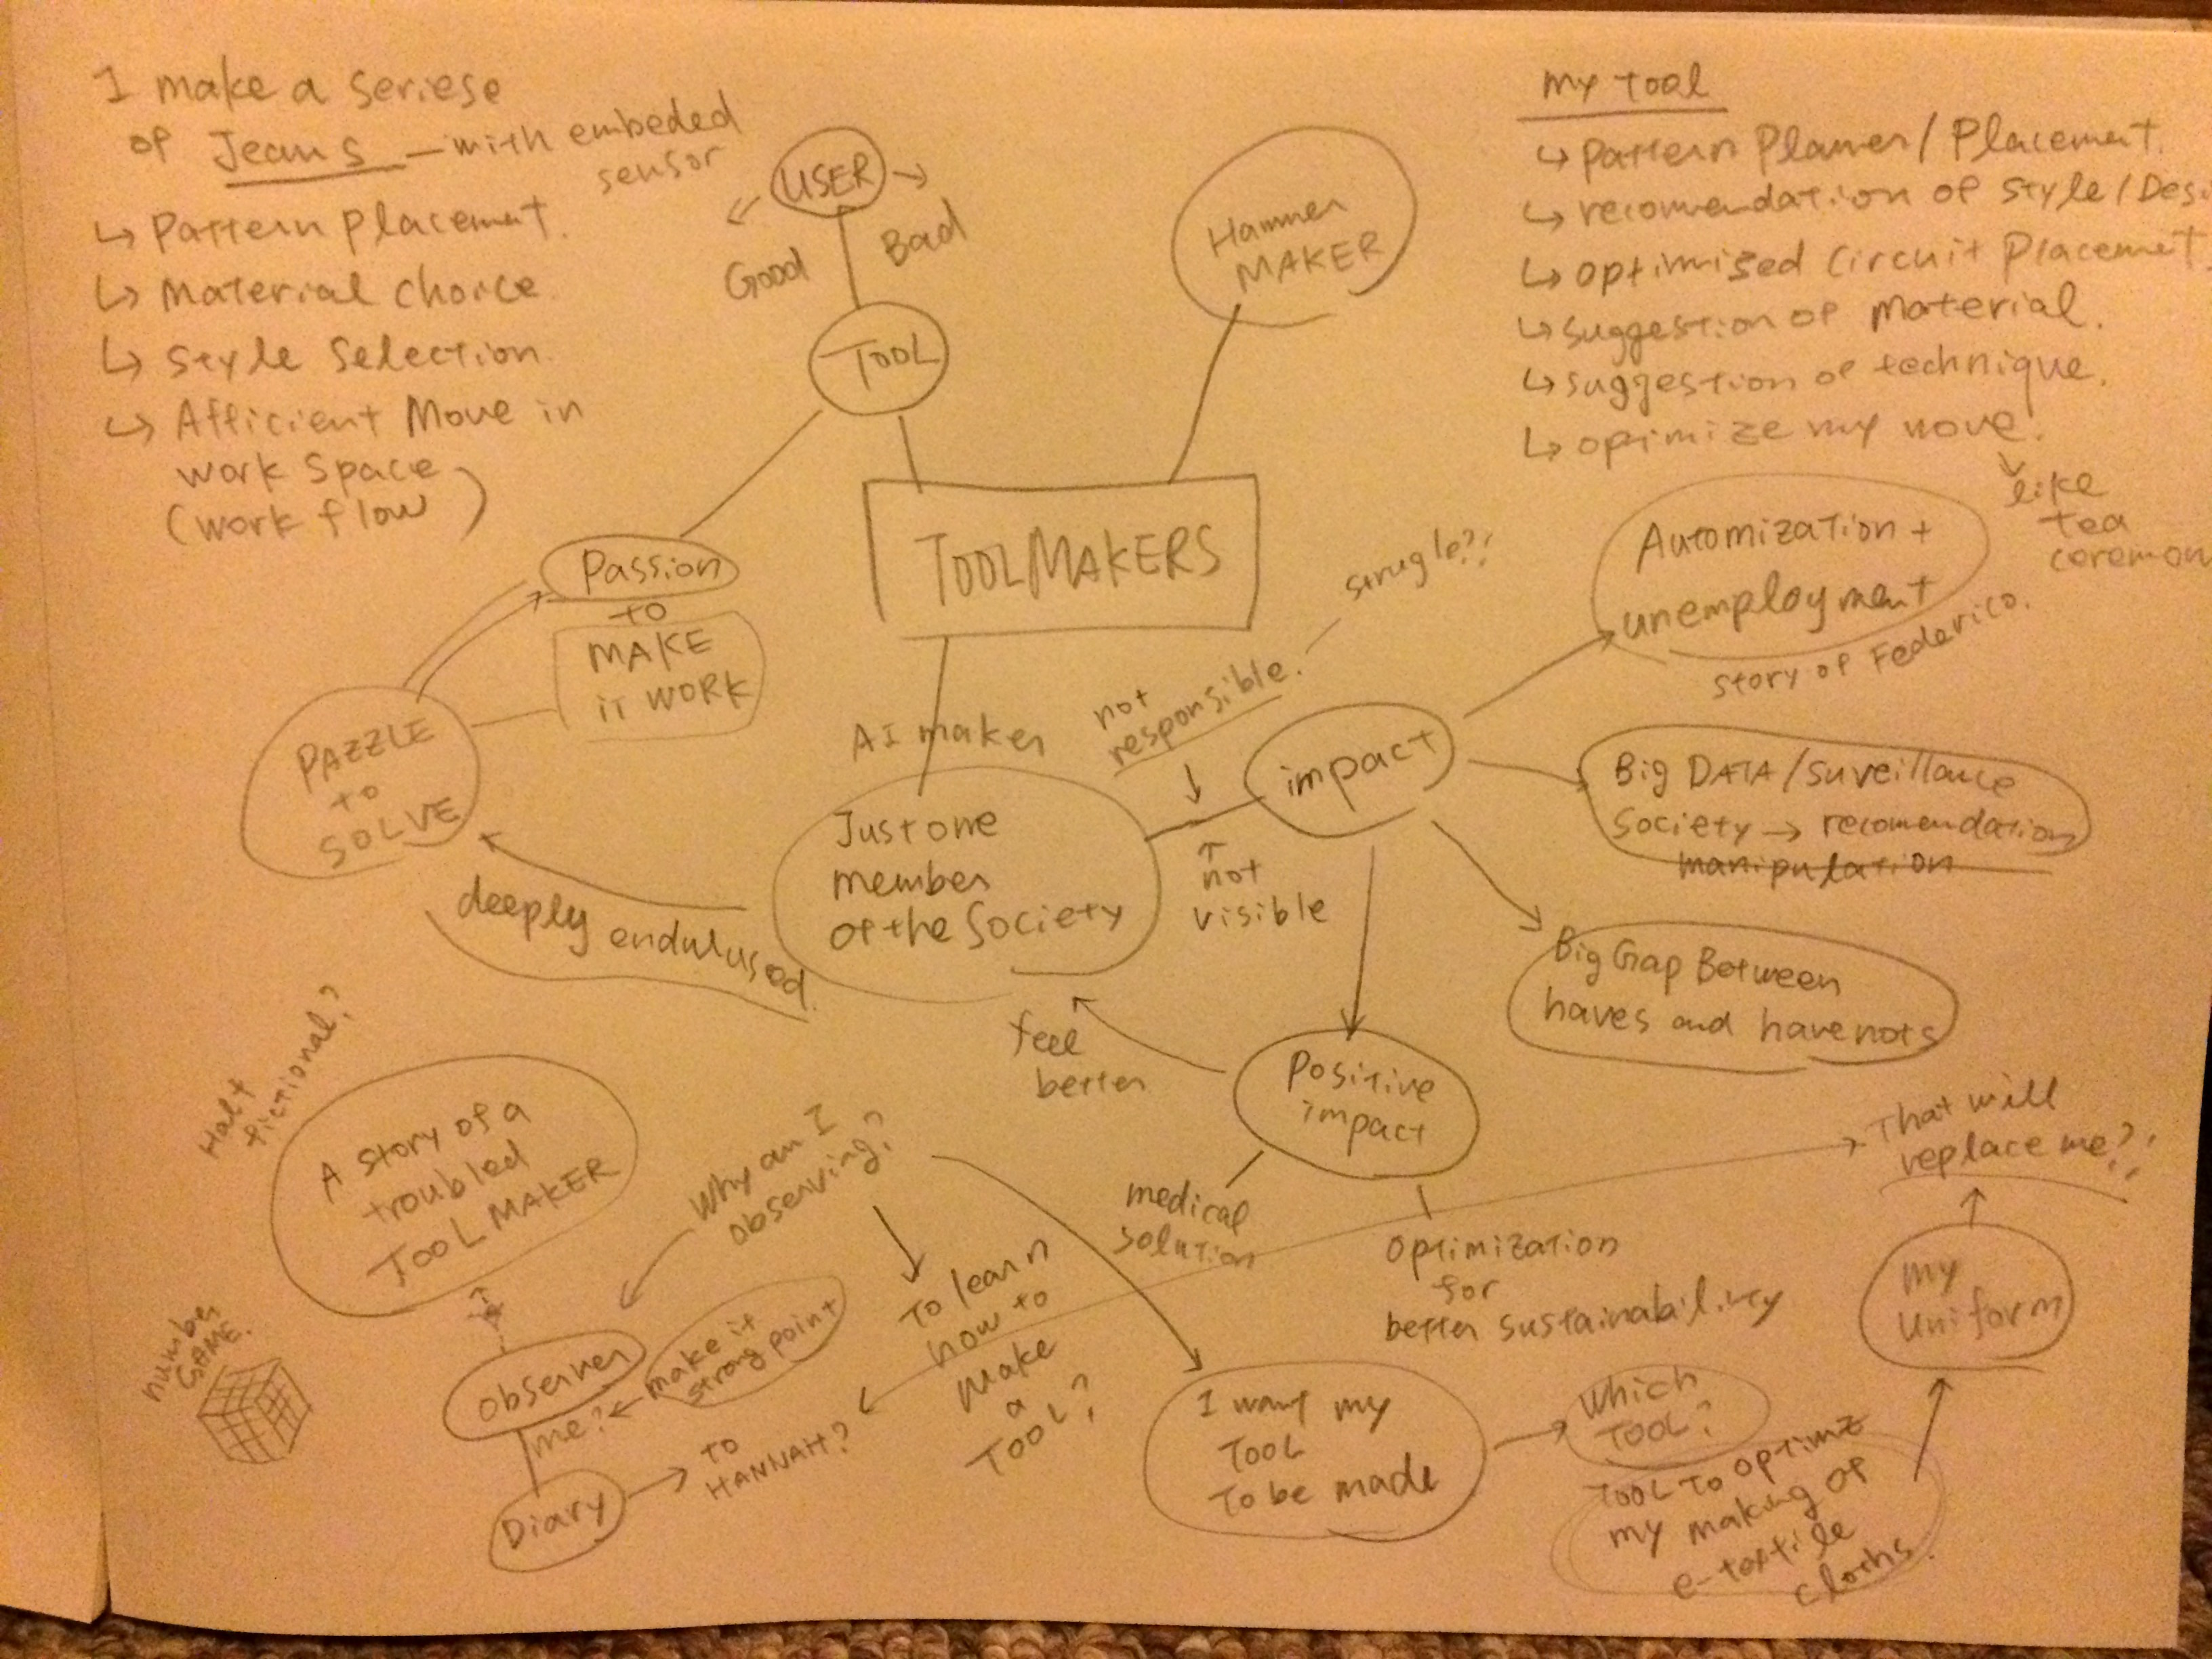 I make a seriese
of Jeans - with embeded
sensor
↳ Pattern placement.
↳ Material choice.
↳ Style Selection.
↳ Afficient Move in
work space
(work flow)
USER
Good
Bad
TOOL
Hammer
MAKER
TOOLMAKERS
my tool
↳ Pattern Planner / Placement.
↳ recomendation of style / Des
↳ optimised circuit Placement.
↳ suggestion of material.
↳ suggestion of technique.
↳ optimize my move.
like
tea
ceremon
Passion
to
MAKE
iT WORK
PAZZLE
to
SOLVE
AI maker
Just one
member
of the Society
deeply
not
responsible.
strugle?!
not
visible
impact
Automization +
unemployment
story of Federico.
Big DATA / Suveillance
Society → recomendation
manipulation
Big Gap Between
haves and have nots
Positive
impact
feel
better
medical
solution
optimization
for
better sustainability
Half
fictional?
A story of a
troubled
TOOLMAKER
number
GAME.
Why am I
observing?
To learn
how to
make
a
TOOL?
observer
me?
make it
strong point
Diary
TO
HANNAH?
I want my
TOOL
To be made
Which
TOOL?
TOOL TO optimize
my making of
e-textile
cloths.
my
uniform
That will
replace me?!